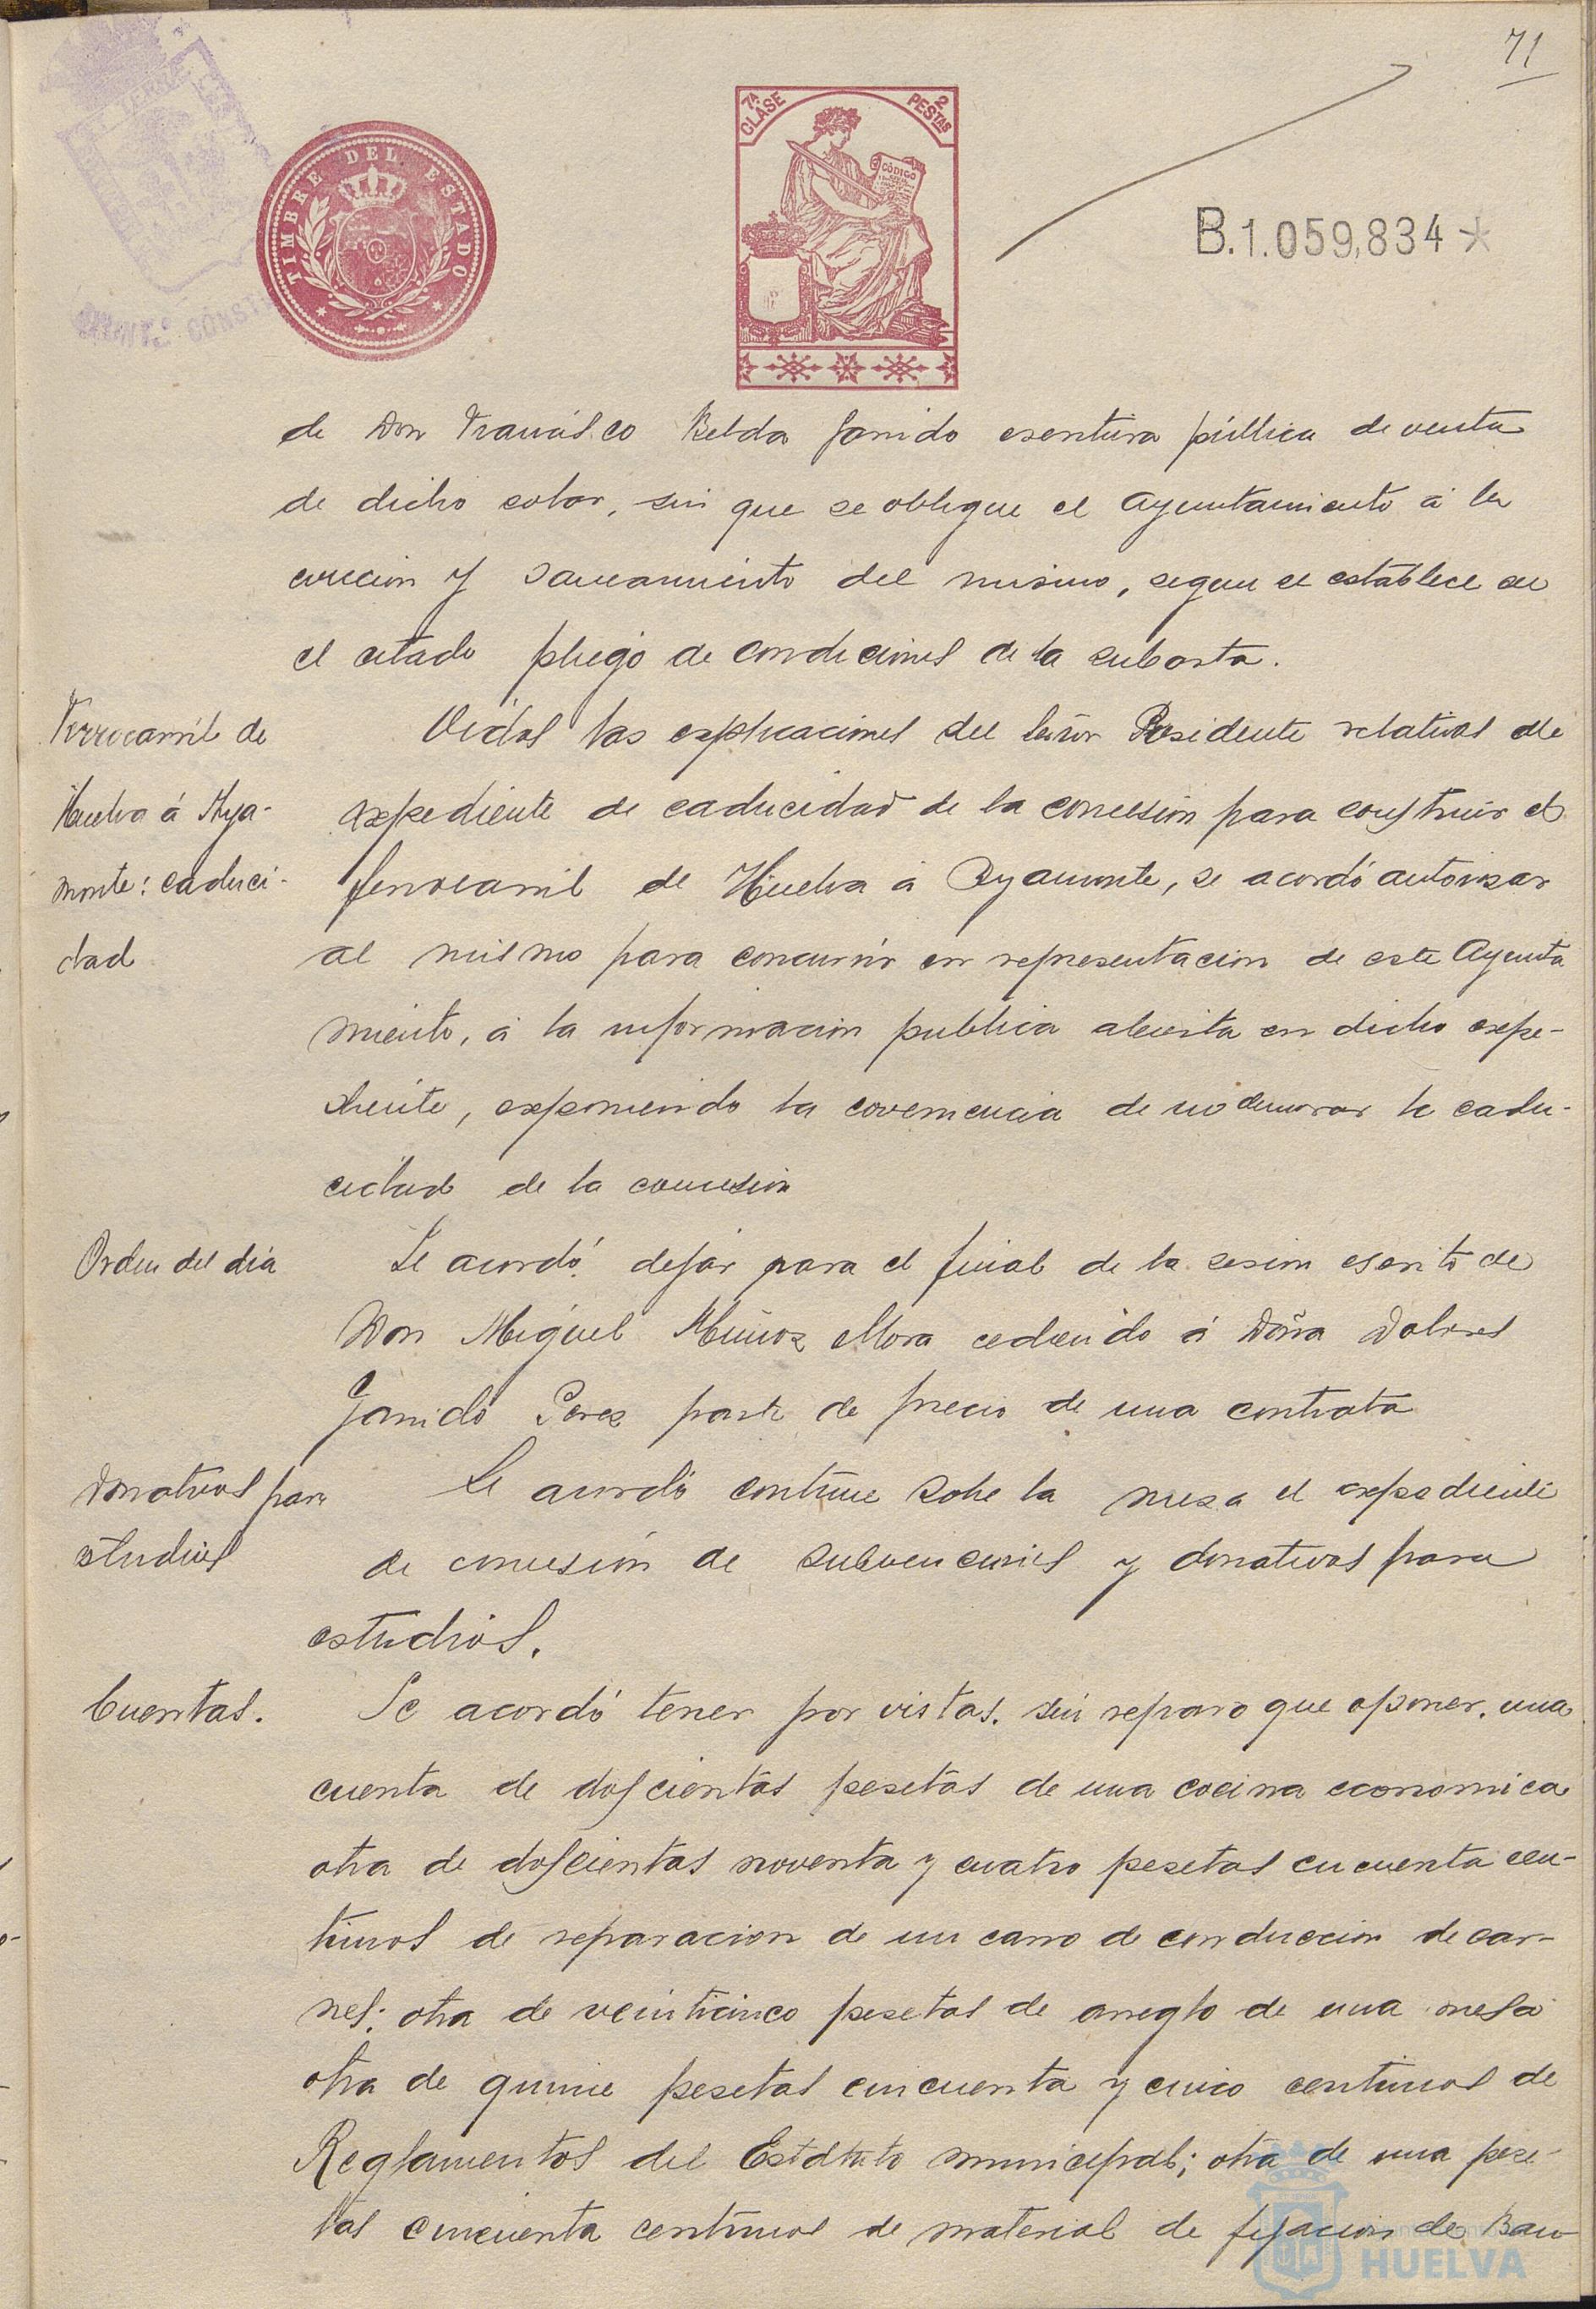 71
7ª CLASE
2 PESTAS
CÓDIGO
TIMBRE DEL ESTADO
B.1.059,834*
de Don Francisco Belda Garrido escritura pública de venta
de dicho solar, sin que se obligue el Ayuntamiento á la
evicción y saneamiento del mismo, segun se establece en
el citado pliego de condiciones de la subasta.
Ferrocarril de
Huelva á Aya-
monte: caduci-
dad
Oidas las explicaciones del Señor Presidente relativas al
expediente de caducidad de la concesión para construir el
ferrocarril de Huelva á Ayamonte, se acordó autorizar
al mismo para concurrir en representacion de este Ayunta
miento, á la informacion publica abierta en dicho expe-
diente, exponiendo la covenencia de no demorar la cadu-
cidad de la concesion
Orden del dia
Se acordó dejar para el final de la sesion escrito de
Don Miguel Muñoz Mora cediendo á Doña Dolores
Garrido Perez parte de precio de una contrata
Donativos para
estudios
Se acordó continue sobre la mesa el expediente
de concesión de subvenciones y donativos para
estudios.
Cuentas.
Se acordó tener por vistas. sin reparo que oponer. una
cuenta de doscientas pesetas de una cocina economica
otra de doscientas noventa y cuatro pesetas cincuenta cen-
timos de reparacion de un carro de conduccion de car-
nes; otra de veinticinco pesetas de arreglo de una mesa
otra de quince pesetas cincuenta y cinco centimos de
Reglamentos del Estatuto municipal; otra de una pese-
tas cincuenta centimos de material de fijacion de Ban-
HUELVA